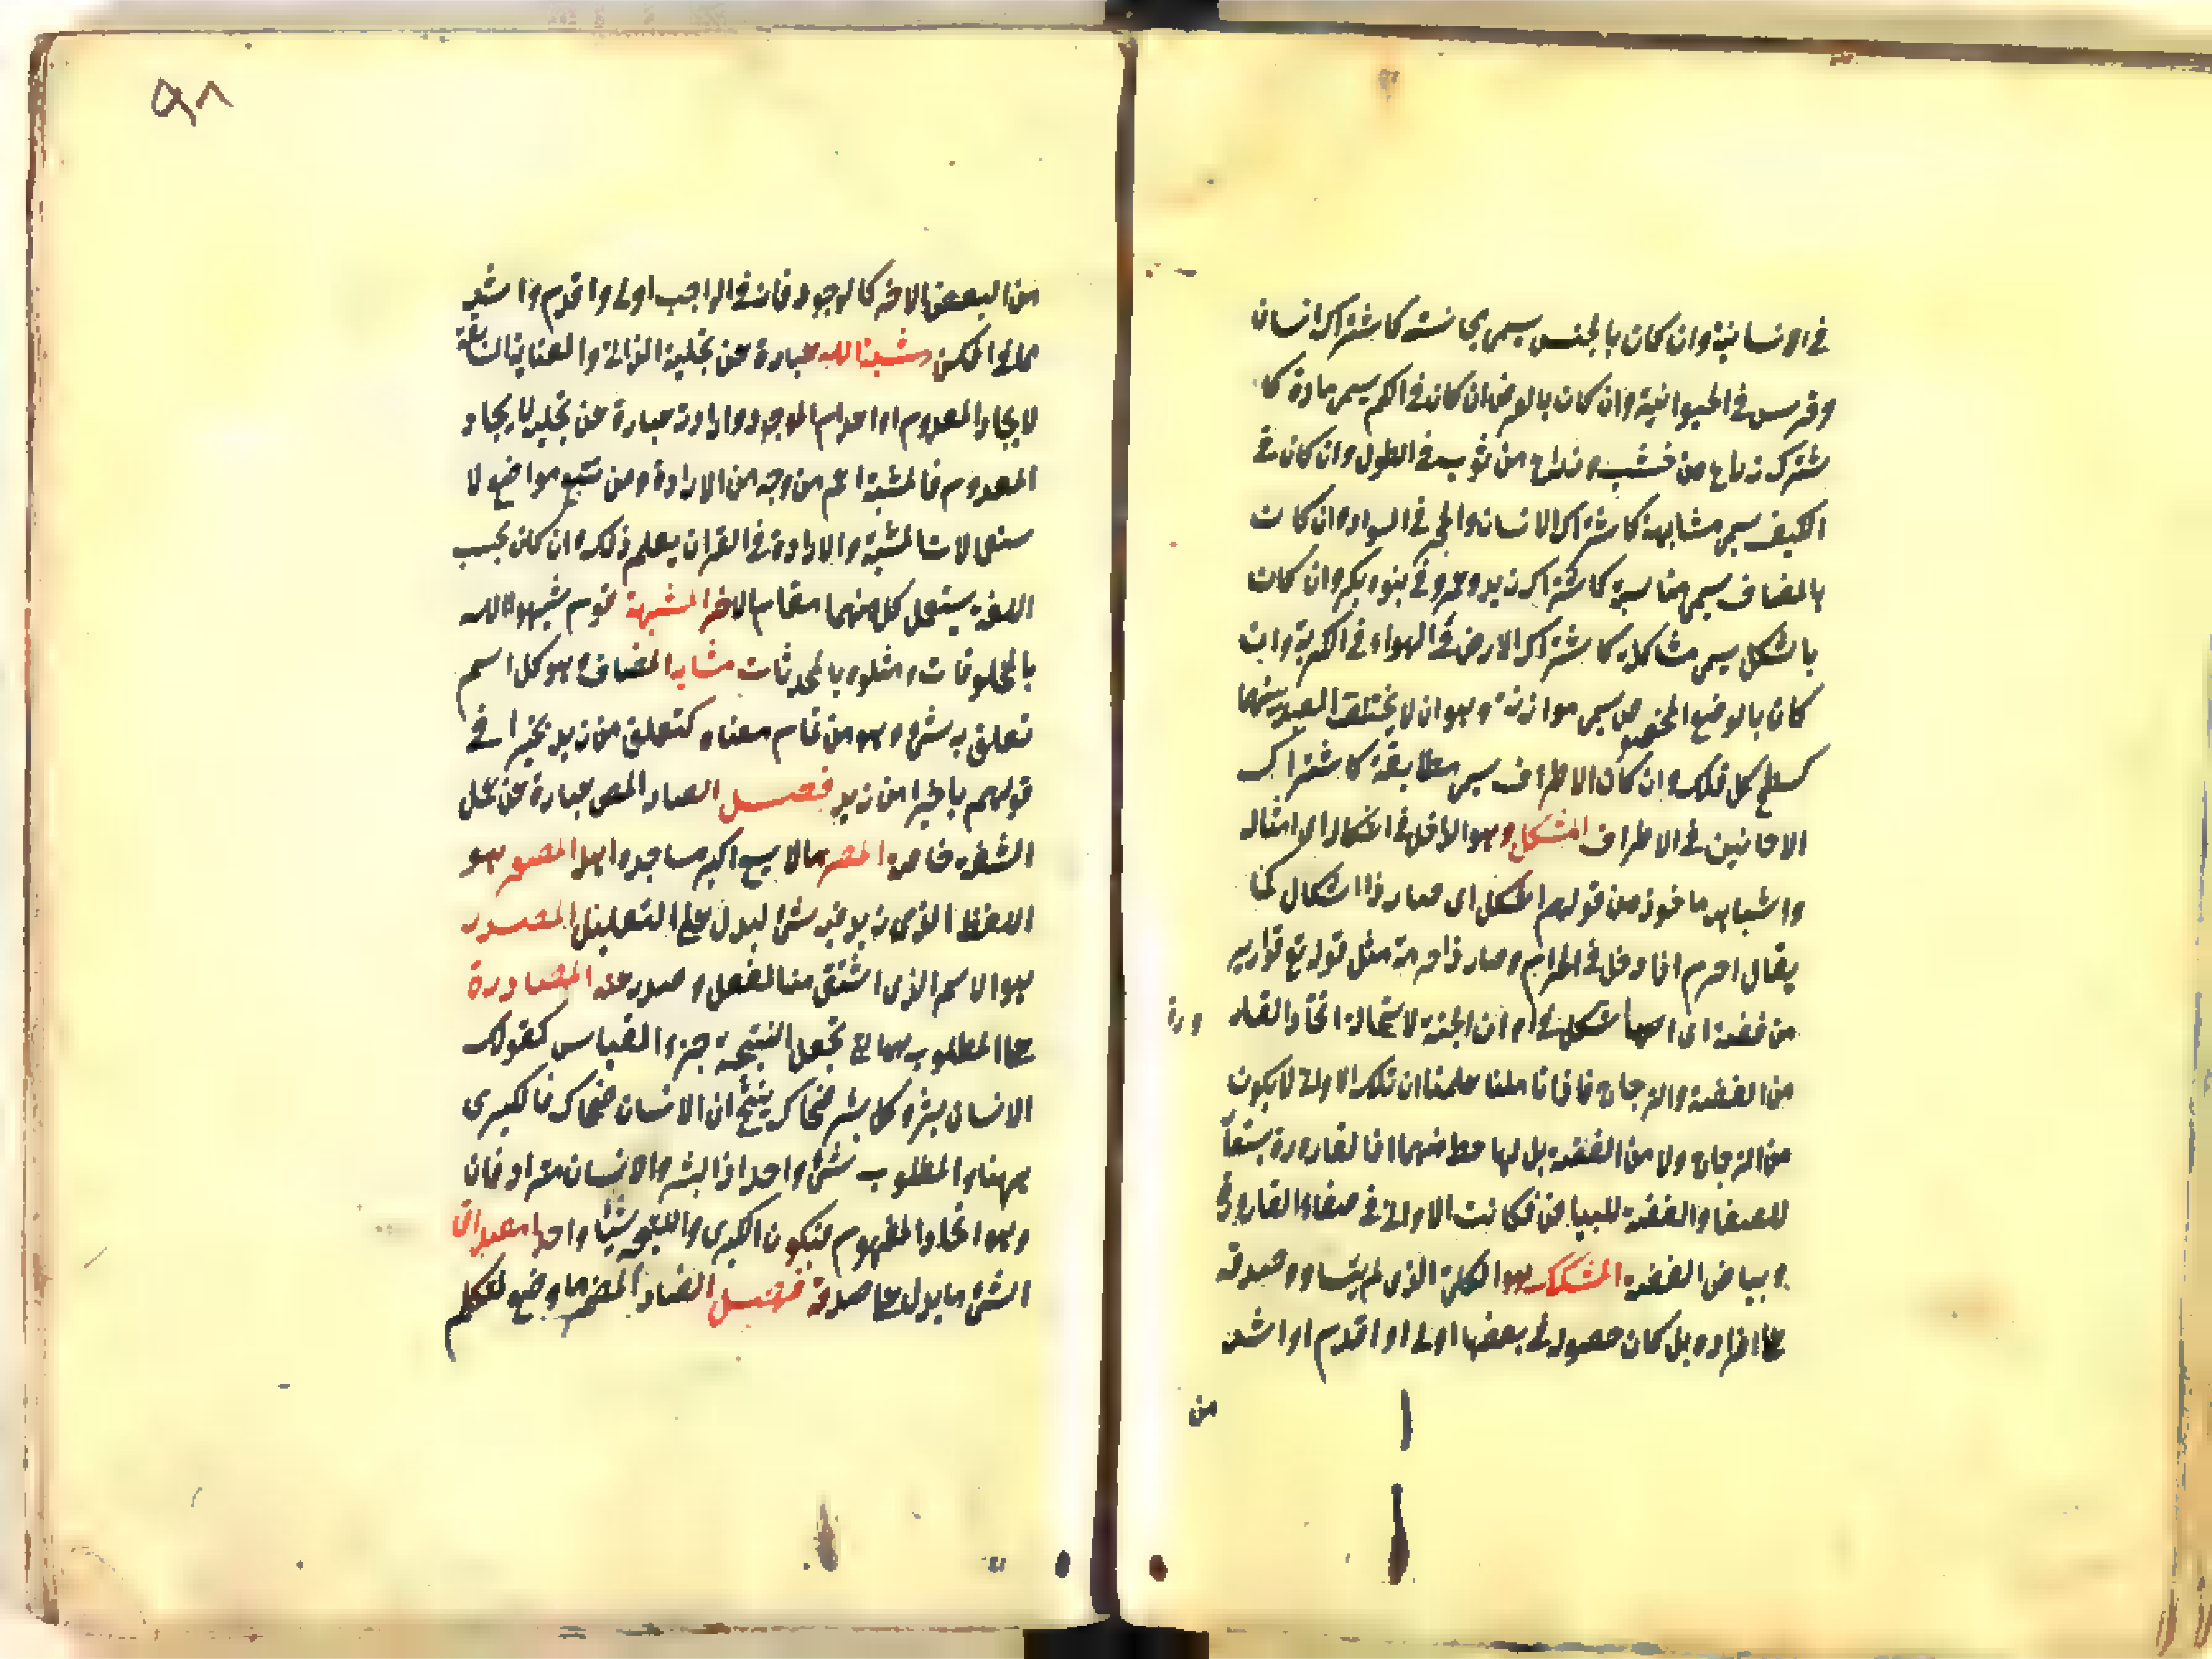 في الانسانية وان كان بالجنس يسمى مجانسة كاشتراك انسان
وفرس في الحيوانية وان كان بالعرض ان كان في الكم يسمى مادة كا
شتراك ذراع من خشب وذراع من ثوب في الطول وان كان في
الكيف يسمى مشابهة كاشتراك الانسان والحجر في السواد وان كان
بالمضاف يسمى مناسبة كاشتراك زيد وعمرو في بنوة بكر وان كان
بالشكل يسمى مشاكلة كاشتراك الارض في الهواء في الكرية وان
كان بالوضع المخصوص يسمى موازنة وهو ان لا يختلف البعد بينهما
كسطح كل فلك وان كان الاطراف يسمى مطابقة كاشتراك
الاجانين في الاطراف المشكل وهو الداخل في اشكاله اى امثاله
واشباهه ماخوذ من قولهم اشكل اى صار ذا اشكال كما
يقال احرم اذا دخل في الحرام وصار ذا حرمة مثل قوله تع قوارير
من فضة اى اشكل في اوان الجنة لاستحالة اتخاذ القار
ورة
من الفضة والزجاج فاذا تاملنا علمنا ان تلك الاوانى لا يكون
من الزجاج ولا من الفضة بل لها حظ منهما اذ القارورة يستعا
للصفا والفضة للبياض فكانت الاوانى في صفاء القارورة
وبياض الفضة المشكك هو الكلى الذى لم يتساو صدقه
على افراده بل كان حصوله في بعضها اولى او اقدم او اشد
من
٩٨
من البعض الاخر كالوجود فانه في الواجب اولى واقدم واشد
مما في الممكن مشية الله عبارة عن تجلية الذاتى والعناية السابقة
لايجاد المعدوم او اعدام الموجود وارادته عبارة عن تجليه لايجاد
المعدوم فالمشية اعم من وجه من الارادة ومن تتبع مواضع لا
ستعمالات المشية والارادة في القران يعلم ذلك وان كان بحسب
اللغة يستعمل كل منهما مقام الاخر المشبهة قوم شبهوا الله
بالمخلوقات ومثلوه بالمحدثات مشابه المضاف وهو كل اسم
تعلق به شئ وهو من تمام معناه كتعلق من زيد بخيرا في
قولهم يا خيرا من زيد فصل الصاد المص عبارة عن عمل
الشفة خاصة المصر ما لا يسع اكبر مساجده اهله المصغر هو
اللفظ الذى زيد فيه شئ ليدل على التقليل المصدر
هو الاسم الذى اشتق منه الفعل وصدر عنه المصادرة
على المطلوب هى التى تجعل النتيجة جزء القياس كقولك
الانسان بشر وكل بشر ضحاك ينتج ان الانسان ضحاك فالكبرى
ههنا والمطلوب شئ واحد اذ البشر والانسان مترادفان
وهو اتحاد المفهوم فيكون الكبرى والنتيجة شيئا واحدا مصداق
الشئ ما يدل على صدقه فصل الضاد المضمر ما وضع لمتكلم